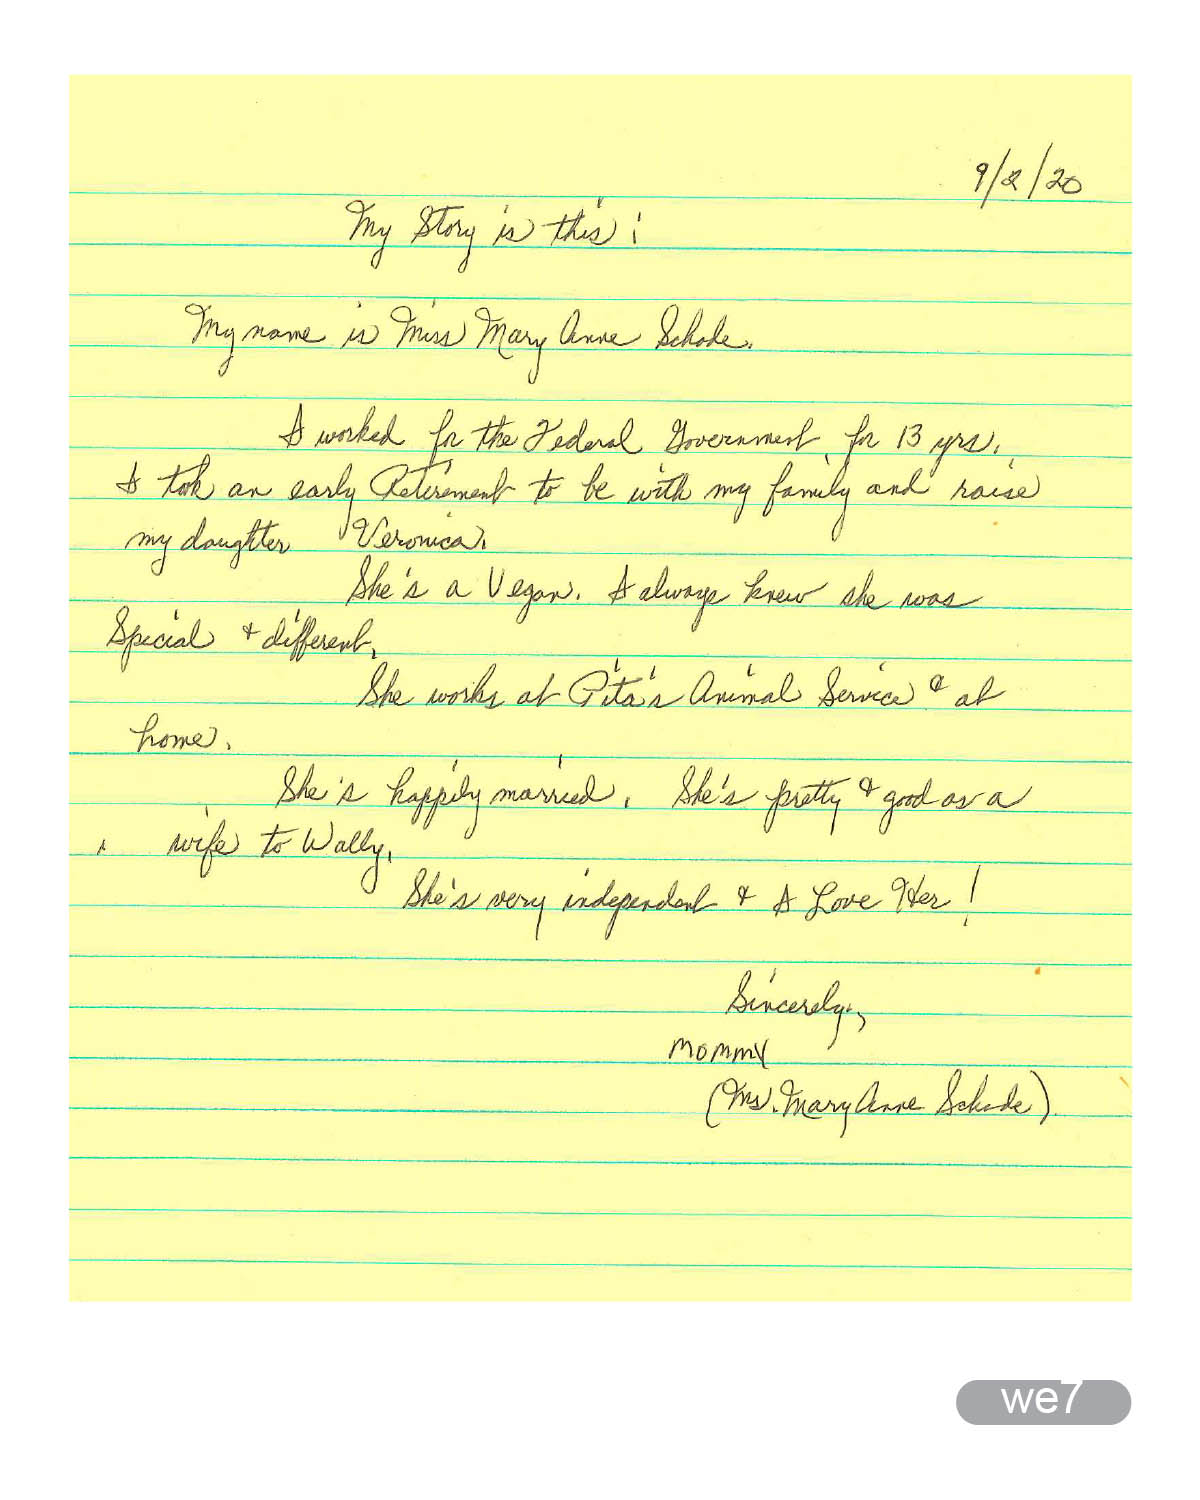 9/2/20
My Story is this:
My name is Miss Mary Anne Schade.
I worked for the Federal Government, for 13 yrs.
I took an early Retirement to be with my family and raise
my daughter Veronica.
She's a Vegan. I always knew she was
Special & different.
She works at Pita's Animal Service & at
home.
She's happily married. She's pretty & good as a
wife to Wally.
She's very independent & I Love Her!
Sincerely,
MOMMY
(Ms. Mary Anne Schade)
we7